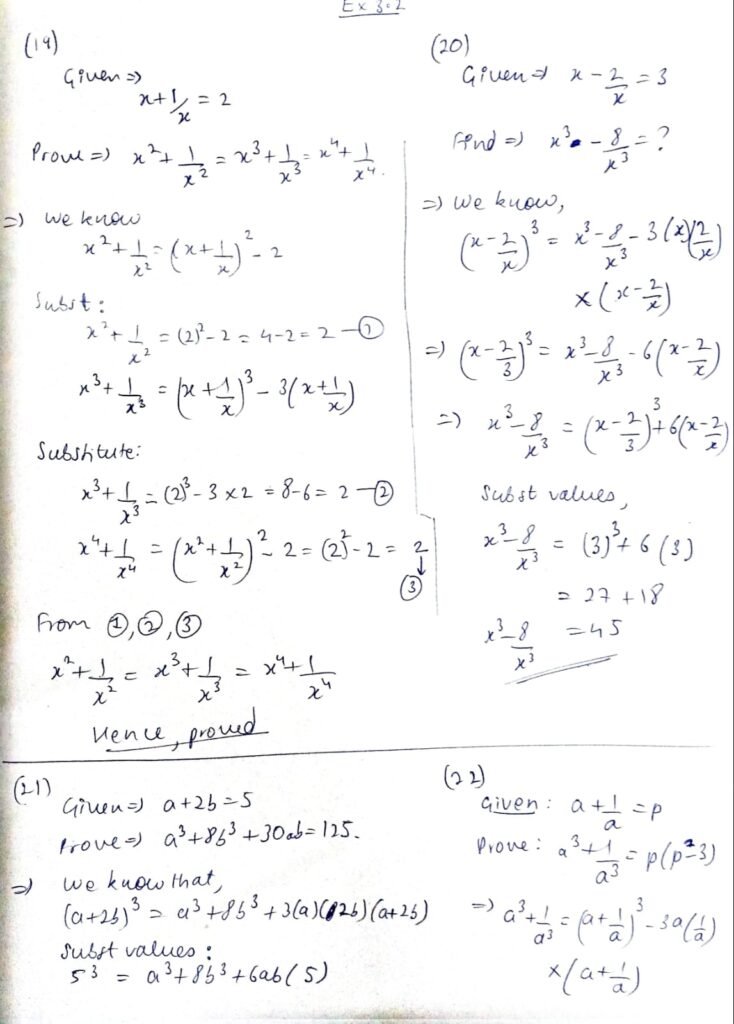 Ex 3.2
(19)
Given ⇒
x + 1/x = 2
Prove ⇒ x² + 1/x² = x³ + 1/x³ = x⁴ + 1/x⁴.
⇒ We know
x² + 1/x² = (x + 1/x)² - 2
Subst :
x² + 1/x² = (2)² - 2 = 4 - 2 = 2 — ①
x³ + 1/x³ = (x + 1/x)³ - 3(x + 1/x)
Substitute:
x³ + 1/x³ = (2)³ - 3 × 2 = 8 - 6 = 2 — ②
x⁴ + 1/x⁴ = (x² + 1/x²)² - 2 = (2)² - 2 = 2
↓
③
From ①, ②, ③
x² + 1/x² = x³ + 1/x³ = x⁴ + 1/x⁴
Hence, proved
(20)
Given ⇒ x - 2/x = 3
Find ⇒ x³ - 8/x³ = ?
⇒ We know,
(x - 2/x)³ = x³ - 8/x³ - 3(x)(2/x)
× (x - 2/x)
⇒ (x - 2/3)³ = x³ - 8/x³ - 6(x - 2/x)
⇒ x³ - 8/x³ = (x - 2/3)³ + 6(x - 2/x)
Subst values,
x³ - 8/x³ = (3)³ + 6(3)
= 27 + 18
x³ - 8/x³ = 45
(21)
Given ⇒ a + 2b = 5
Prove ⇒ a³ + 8b³ + 30ab = 125.
⇒ We know that,
(a + 2b)³ = a³ + 8b³ + 3(a)(2b)(a + 2b)
Subst values :
5³ = a³ + 8b³ + 6ab(5)
(22)
Given : a + 1/a = p
Prove : a³ + 1/a³ = p(p² - 3)
⇒ a³ + 1/a³ = (a + 1/a)³ - 3a(1/a)
× (a + 1/a)